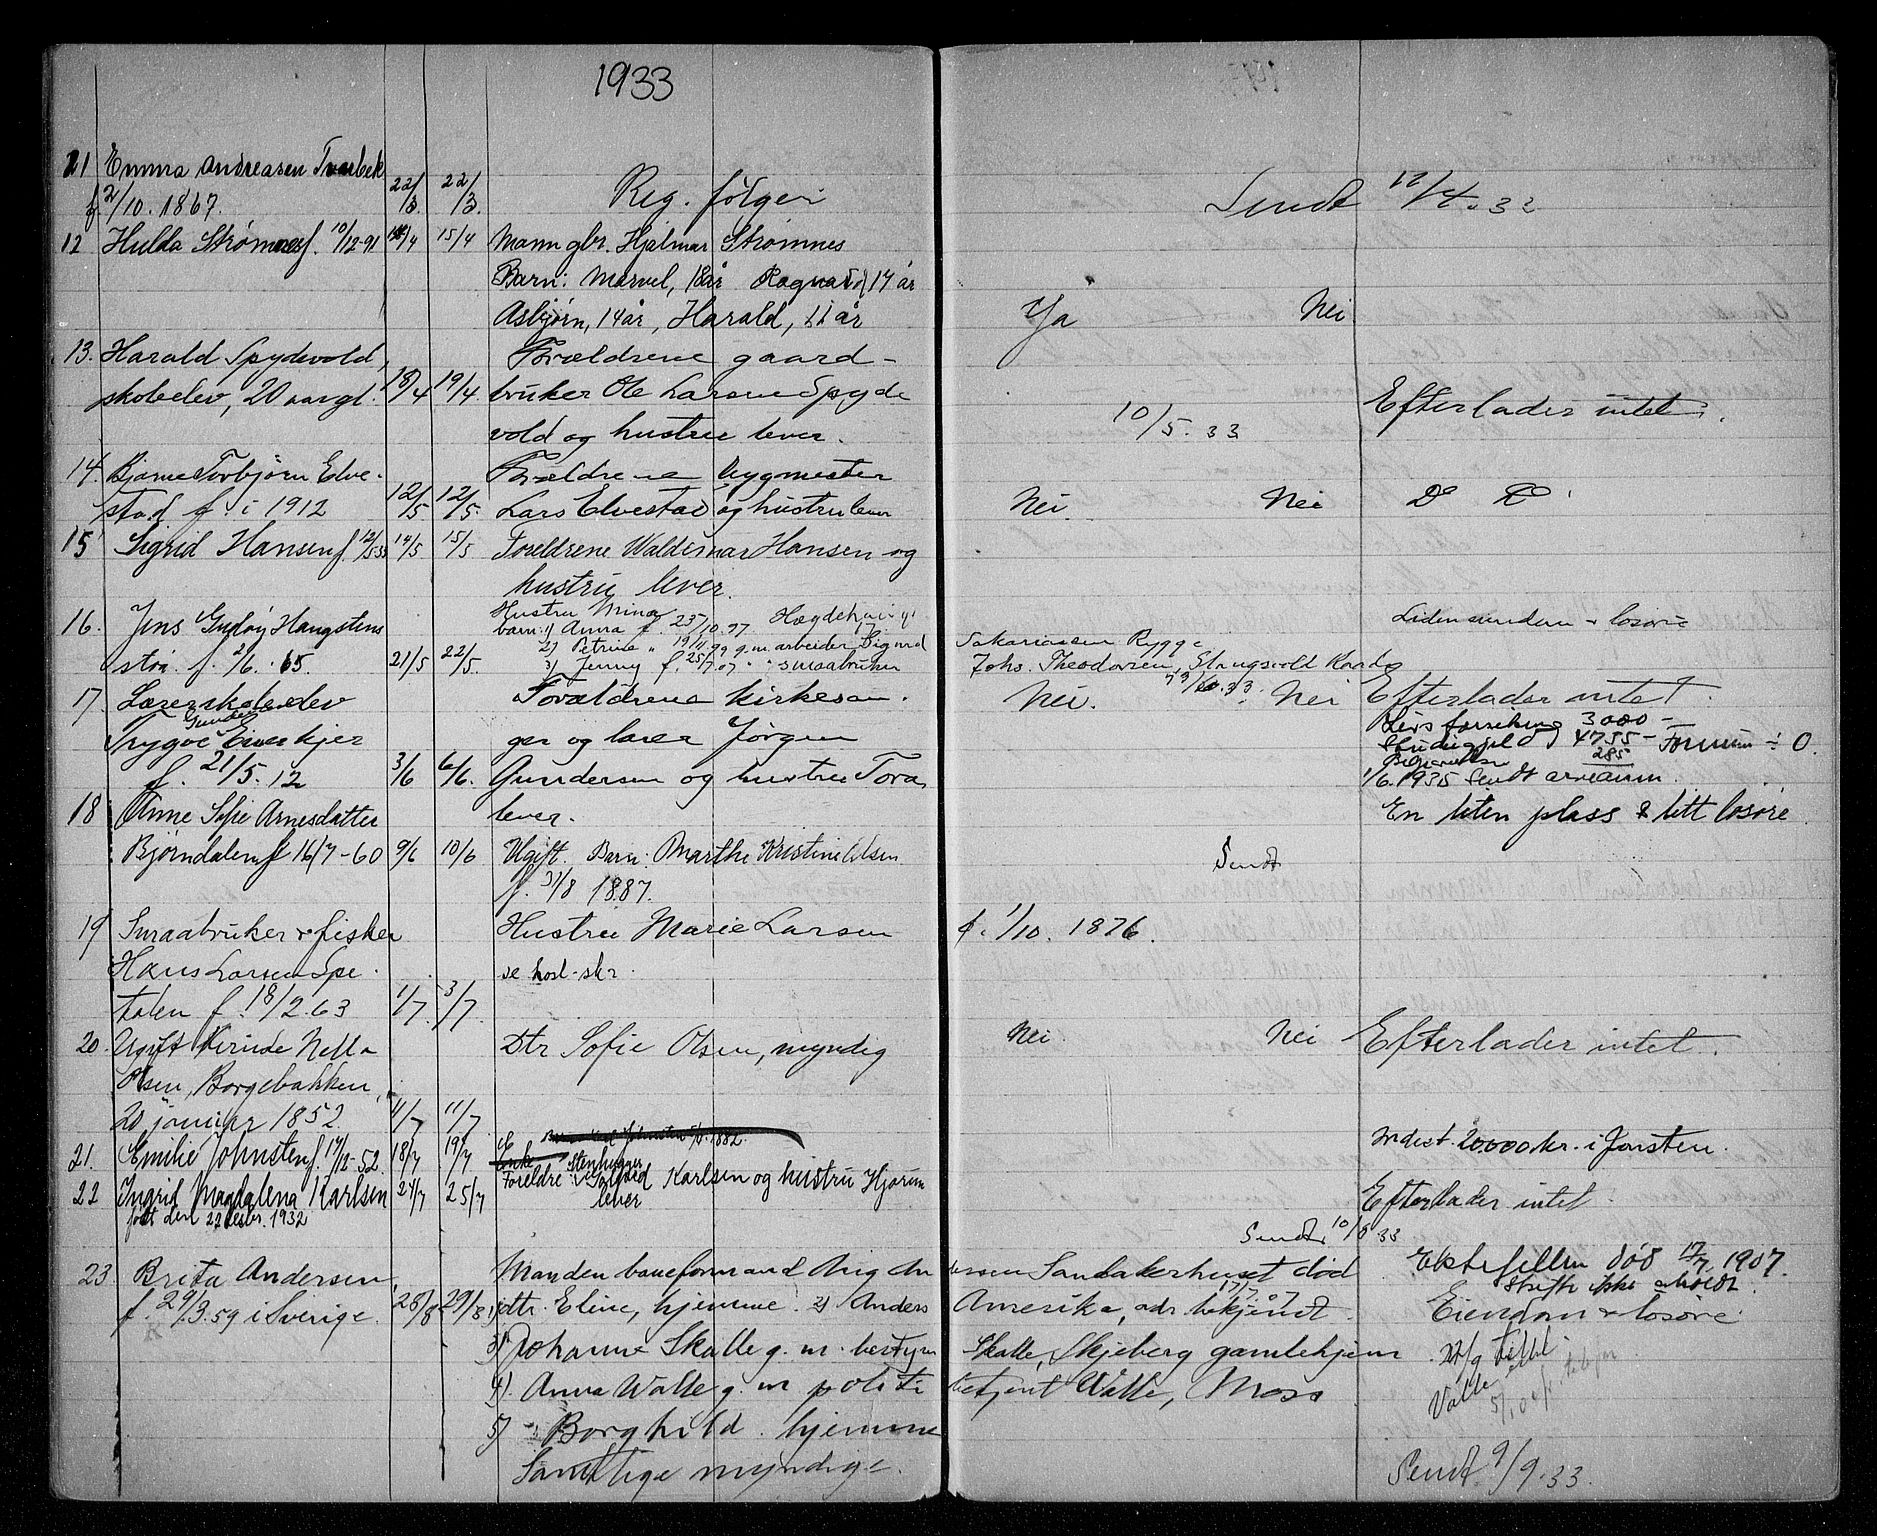 1933
21 Emma Andreasen Tvarbek
f 2/10. 1867. 22/3. 22/3. Reg. følger Sendt 12/4.33
12 Hulda Strømnes f. 10/12-91 14/4 15/4 Mann gbr. Hjalmar Strømnes
Barn: Marvel, 18 år Ragnar 17 år
Asbjørn, 14 år, Harald, 11 år Ja Nei
13. Harald Spydevold, Forældrene gaard-
skoleelev, 20 aar gl. 18/4 19/4. bruker Ole Larsen Spyde Efterlader intet.
vold og hustru lever. 10/5. 33
14. Bjarne Torbjørn Elve- Forældrene bygmester
stad f. i 1912 12/5 12/5. Lars Elvestad og hustru lever Nei. Nei Do Do
15 Sigrid Hansen f. 12/5 33 14/5 15/5 Foreldrene Waldemar Hansen og
hustru lever.
16. Jens Hustru Mina Liden eiendom + losøre
barn: 1) Anna f. 23/10.97
2) Petrine " 19/11.99 g.m. arbeider Sigurd Sakariassen Rygge
f. 2/6. 65. 21/5 22/5. 3) Jenny f. 25/7.07 " " smaabruker Johs. Theodorsen,
17. Lærerskoleelev Forældrene kirkesan- Nei. Nei Efterlader intet
Gunder
Trygve ger og lærer Jørgen Livsforsikring 3000 -
Studiegjeld 4755 -
285 Formue ÷ 0
f. 21/5. 12 3/6 6/6. Gundersen og hustru Tora 1/6.1935 Sendt
18 Anne Sofie Arnesdatter lever. En liten plass & litt losøre
Bjørndalen f 16/7-60 9/6 10/6 Ugift. Barn: Marthe Kristine Olsen Sendt
f. 31/8 1887.
19 Smaabruker + fisker Hustru Marie Larsen f. 1/10. 1876.
Hans Larsen Spe-
talen f. 18/2. 63 1/7. 3/7.
20. Ugift kvinde Nella Dtr Sofie Olsen, myndig Nei Nei Efterlader intet.
Olsen, Borgebakken,
20 januar 1852. 11/7 11/7
21. Emilie Johnsten f. 17/12-52 18/7 19/7 Enke Indest. 20000 kr. i Jonsten.
22 Ingrid Magdalena Karlsen 24/7 25/7 Foreldre: Stenhugger Karlsen og hustru Hjørun Efterlader intet
født den 22 1932 lever
Sendt 10/8 33
23 Brita Andersen, Manden baneformand Andersen Sandakerhuset død Ektefellen død 17/7, 1907.
17/7.07 Skifte ikke
f. 29/3.59 i Sverige. 28/8 29/8 1) dtr. Eline, hjemme. 2) Anders Amerika, adr. bekjendt. Eiendom + losøre
3) Johanne Skalle g. m. bestyrer Skalle, Skjeberg gamlehjem
4) Anna Walle g. m. politibetjent Walle, Moss
5) Borghild. hjemme
Samtlige myndige. Sendt 9/9.33.